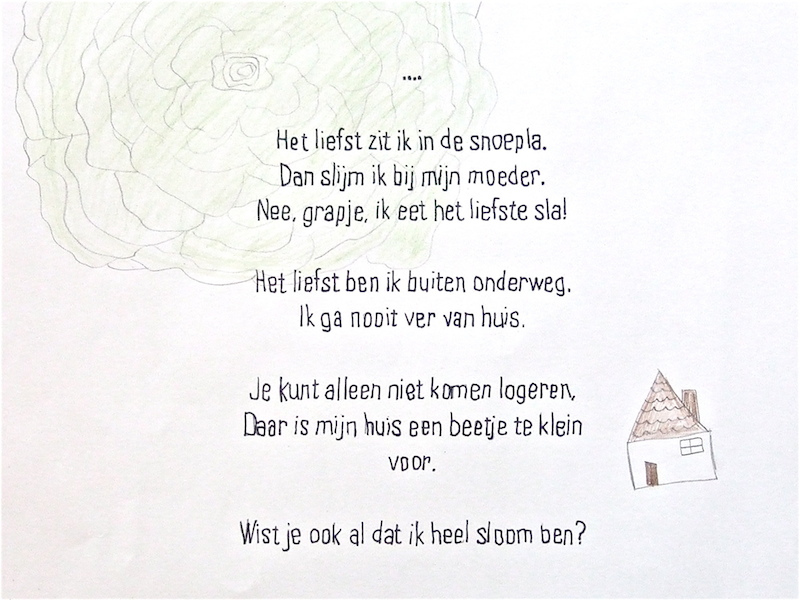 ....
Het liefst zit ik in de snoepla.
Dan slijm ik bij mijn moeder.
Nee, grapje, ik eet het liefste sla!
Het liefst ben ik buiten onderweg.
Ik ga nooit ver van huis.
Je kunt alleen niet komen logeren,
Daar is mijn huis een beetje te klein
voor.
Wist je ook al dat ik heel sloom ben?